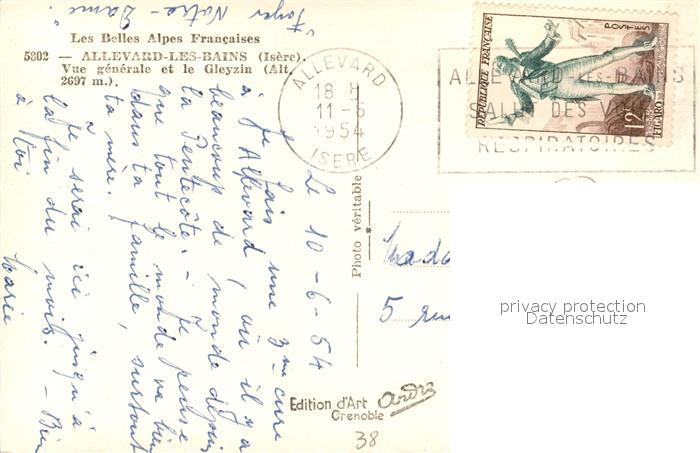 "Foyer Notre-Dame"
Les Belles Alpes Françaises
5802 — ALLEVARD-LES-BAINS (Isère).
Vue générale et le Gleyzin (Alt.
2697 m.).
ALLEVARD
18 H
11-6
1954
ISERE
ALLEVARD-LES-BAINS
SALUT DES VOIES
RESPIRATOIRES
REPUBLIQUE FRANÇAISE
POSTES
12F
FIGARO
Le 10-6-54
Je fais une 3me cure
à Allevard, où il y a
beaucoup de monde depuis
la Pentecôte. - Je pense
que tout le monde va bien
dans ta famille, surtout
ta mère.
Je serai ici jusqu'à
la fin du mois. - Bien
à toi
Marie
Photo véritable
Mada
5 rue
privacy protection
Datenschutz
Edition d'Art André
Grenoble
38